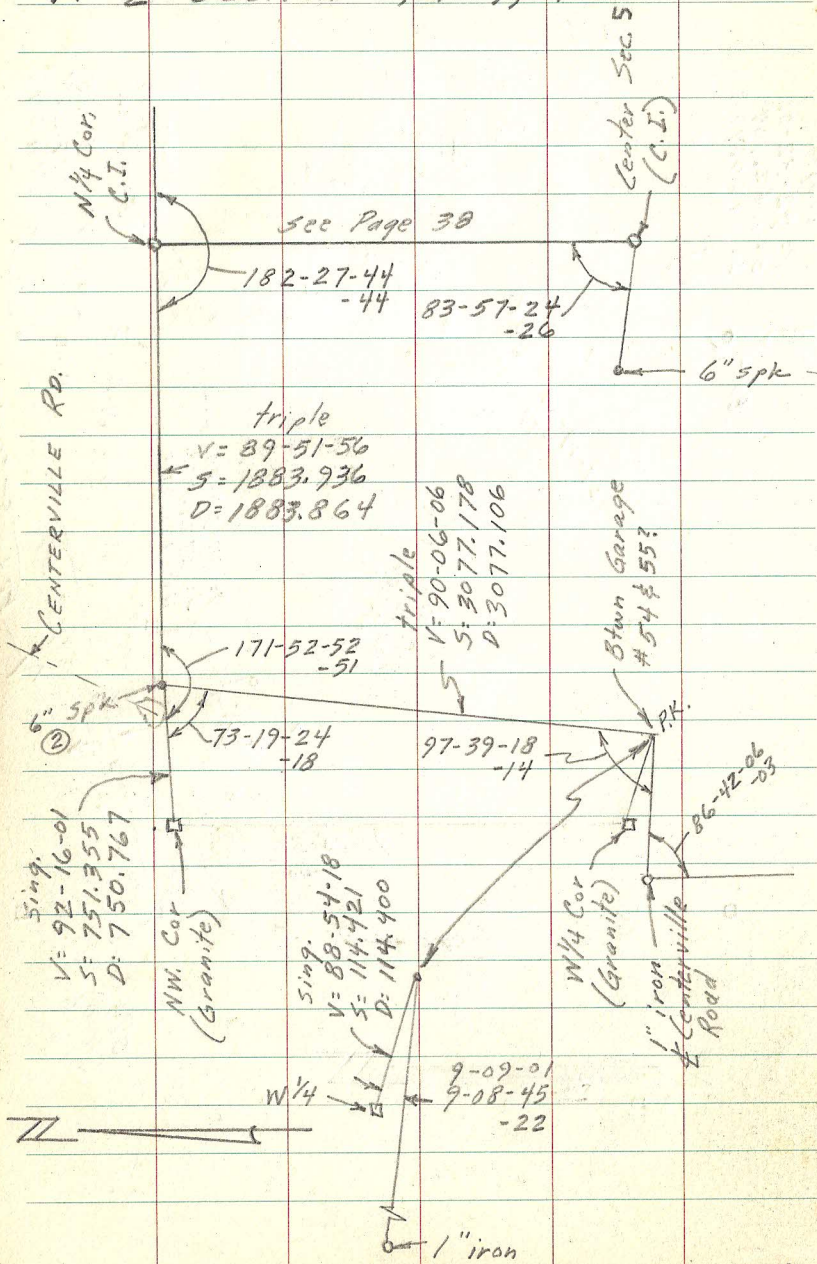 N 1/4 Cor.
C.I.
Center Sec. 5
(C.I.)
See Page 38
182-27-44
-44
83-57-24
-26
6" spk
CENTERVILLE RD.
triple
V= 89-51-56
S= 1883.936
D= 1883.864
triple
V= 90-06-06
S= 3077.178
D= 3077.106
Btwn Garage
#54 & 55?
171-52-52
-51
6" spk
②
73-19-24
-18
97-39-18
-14
P.K.
86-42-06
-03
sing.
V= 92-16-01
S= 751.355
D= 750.767
NW. Cor
(Granite)
sing.
V= 88-54-18
S= 114.421
D= 114.400
W 1/4 Cor
(Granite)
1" iron
℄ Centerville
Road
W 1/4
9-09-01
9-08-45
-22
N
1" iron